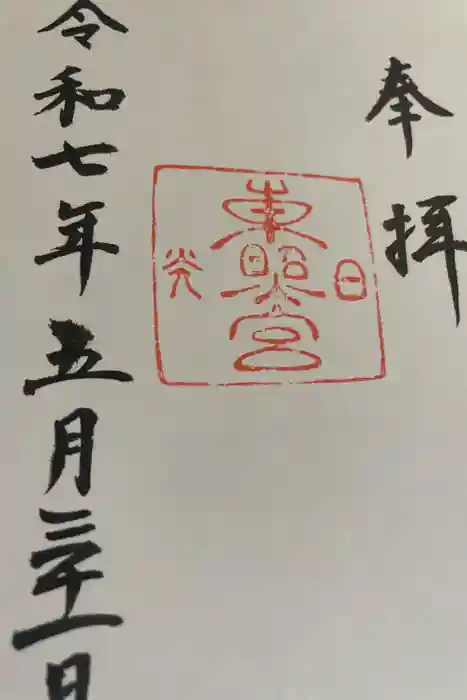 奉拝
日
東照宮
光
令和七年五月三十一日